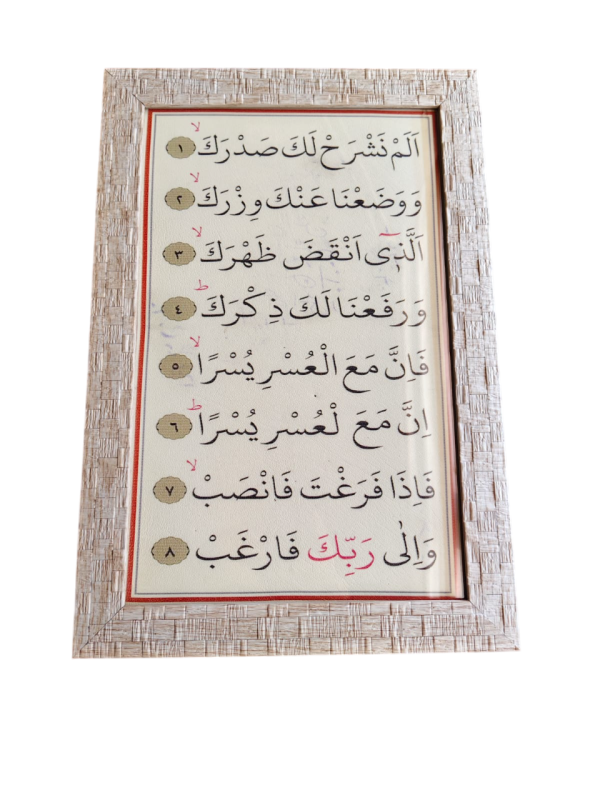 اَلَمْ نَشْرَحْ لَكَ صَدْرَكَۙ ١
وَوَضَعْنَا عَنْكَ وِزْرَكَۙ ٢
اَلَّذ۪ٓى اَنْقَضَ ظَهْرَكَۙ ٣
وَرَفَعْنَا لَكَ ذِكْرَكَۜ ٤
فَاِنَّ مَعَ الْعُسْرِ يُسْرًاۙ ٥
اِنَّ مَعَ لْعُسْرِ يُسْرًاۜ ٦
فَاِذَا فَرَغْتَ فَانْصَبْۙ ٧
وَاِلٰى رَبِّكَ فَارْغَبْ ٨